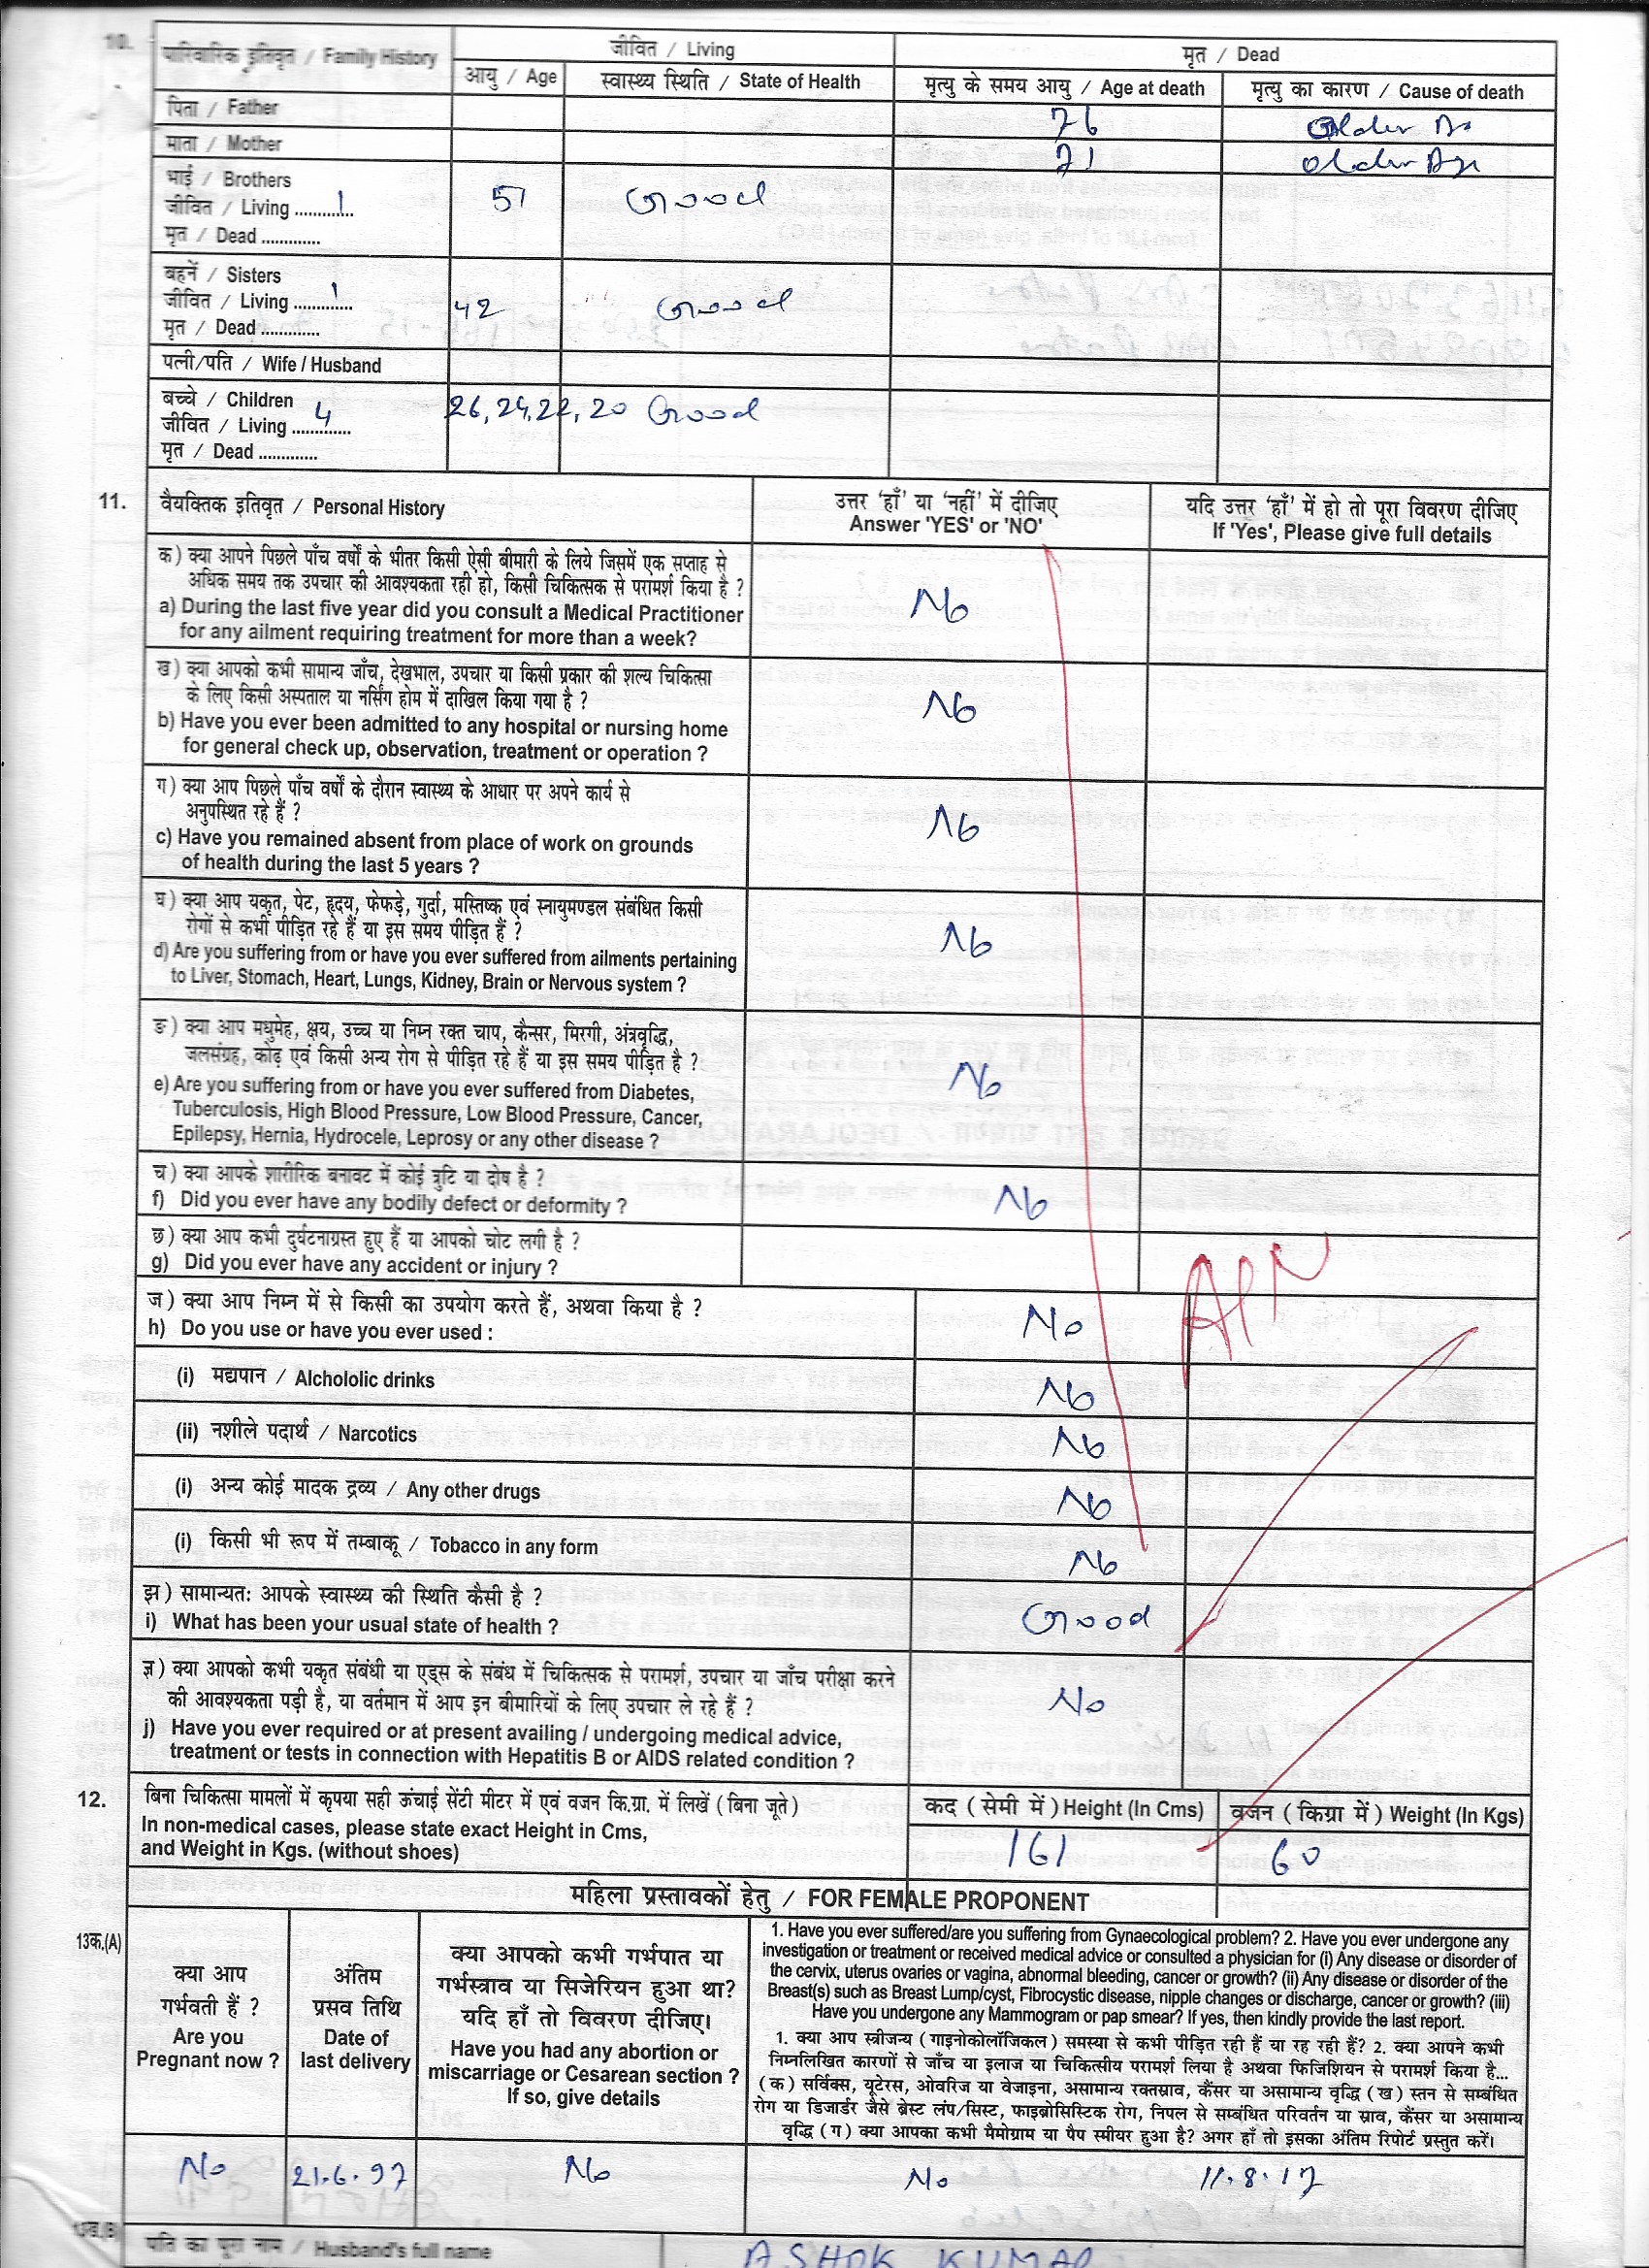 10. पारिवारिक इतिवृत / Family History जीवित / Living मृत / Dead
आयु / Age स्वास्थ्य स्थिति / State of Health मृत्यु के समय आयु / Age at death मृत्यु का कारण / Cause of death
पिता / Father 76 Older
माता / Mother 71 older Age
भाई / Brothers
जीवित / Living ............ 1 51 Good
मृत / Dead .............
बहनें / Sisters
जीवित / Living ............ 1 42 Good
मृत / Dead .............
पत्नी/पति / Wife / Husband
बच्चे / Children
जीवित / Living ............. 4 26, 24, 22, 20 Good
मृत / Dead .............
11. वैयक्तिक इतिवृत / Personal History उत्तर 'हाँ' या 'नहीं' में दीजिए यदि उत्तर 'हाँ' में हो तो पूरा विवरण दीजिए
Answer 'YES' or 'NO' If 'Yes', Please give full details
क) क्या आपने पिछले पाँच वर्षों के भीतर किसी ऐसी बीमारी के लिये जिसमें एक सप्ताह से
अधिक समय तक उपचार की आवश्यकता रही हो, किसी चिकित्सक से परामर्श किया है ?
a) During the last five year did you consult a Medical Practitioner No
for any ailment requiring treatment for more than a week?
ख) क्या आपको कभी सामान्य जाँच, देखभाल, उपचार या किसी प्रकार की शल्य चिकित्सा
के लिए किसी अस्पताल या नर्सिंग होम में दाखिल किया गया है ?
b) Have you ever been admitted to any hospital or nursing home No
for general check up, observation, treatment or operation ?
ग) क्या आप पिछले पाँच वर्षों के दौरान स्वास्थ्य के आधार पर अपने कार्य से
अनुपस्थित रहे हैं ?
c) Have you remained absent from place of work on grounds No
of health during the last 5 years ?
घ) क्या आप यकृत, पेट, हृदय, फेफड़े, गुर्दा, मस्तिष्क एवं स्नायुमण्डल संबंधित किसी
रोगों से कभी पीड़ित रहे हैं या इस समय पीड़ित हैं ?
d) Are you suffering from or have you ever suffered from ailments pertaining No
to Liver, Stomach, Heart, Lungs, Kidney, Brain or Nervous system ?
ङ) क्या आप मधुमेह, क्षय, उच्च या निम्न रक्त चाप, कैन्सर, मिरगी, अंत्रवृद्धि,
जलसंग्रह, कोढ़ एवं किसी अन्य रोग से पीड़ित रहे हैं या इस समय पीड़ित है ?
e) Are you suffering from or have you ever suffered from Diabetes, No
Tuberculosis, High Blood Pressure, Low Blood Pressure, Cancer,
Epilepsy, Hernia, Hydrocele, Leprosy or any other disease ?
च) क्या आपके शारीरिक बनावट में कोई त्रुटि या दोष है ?
f) Did you ever have any bodily defect or deformity ? No
छ) क्या आप कभी दुर्घटनाग्रस्त हुए हैं या आपको चोट लगी है ?
g) Did you ever have any accident or injury ?
ज) क्या आप निम्न में से किसी का उपयोग करते हैं, अथवा किया है ?
h) Do you use or have you ever used : No
(i) मद्यपान / Alchololic drinks No
(ii) नशीले पदार्थ / Narcotics No
(i) अन्य कोई मादक द्रव्य / Any other drugs No
(i) किसी भी रूप में तम्बाकू / Tobacco in any form No
झ) सामान्यतः आपके स्वास्थ्य की स्थिति कैसी है ?
i) What has been your usual state of health ? Good
ञ) क्या आपको कभी यकृत संबंधी या एड्स के संबंध में चिकित्सक से परामर्श, उपचार या जाँच परीक्षा करने
की आवश्यकता पड़ी है, या वर्तमान में आप इन बीमारियों के लिए उपचार ले रहे हैं ? No
j) Have you ever required or at present availing / undergoing medical advice,
treatment or tests in connection with Hepatitis B or AIDS related condition ?
12. बिना चिकित्सा मामलों में कृपया सही ऊंचाई सेंटी मीटर में एवं वजन कि.ग्रा. में लिखें (बिना जूते) कद ( सेमी में ) Height (In Cms) वजन ( किग्रा में ) Weight (In Kgs)
In non-medical cases, please state exact Height in Cms,
and Weight in Kgs. (without shoes) 161 60
महिला प्रस्तावकों हेतु / FOR FEMALE PROPONENT
13क.(A) क्या आप
गर्भवती हैं ?
Are you
Pregnant now ?
अंतिम
प्रसव तिथि
Date of
last delivery
क्या आपको कभी गर्भपात या
गर्भस्त्राव या सिजेरियन हुआ था?
यदि हाँ तो विवरण दीजिए।
Have you had any abortion or
miscarriage or Cesarean section ?
If so, give details
1. Have you ever suffered/are you suffering from Gynaecological problem? 2. Have you ever undergone any
investigation or treatment or received medical advice or consulted a physician for (i) Any disease or disorder of
the cervix, uterus ovaries or vagina, abnormal bleeding, cancer or growth? (ii) Any disease or disorder of the
Breast(s) such as Breast Lump/cyst, Fibrocystic disease, nipple changes or discharge, cancer or growth? (iii)
Have you undergone any Mammogram or pap smear? If yes, then kindly provide the last report.
1. क्या आप स्त्रीजन्य ( गाइनोकोलॉजिकल ) समस्या से कभी पीड़ित रही हैं या रह रही हैं? 2. क्या आपने कभी
निम्नलिखित कारणों से जाँच या इलाज या चिकित्सीय परामर्श लिया है अथवा फिजिशियन से परामर्श किया है...
(क) सर्विक्स, यूटेरस, ओवरिज या वेजाइना, असामान्य रक्तस्राव, कैंसर या असामान्य वृद्धि (ख) स्तन से सम्बंधित
रोग या डिजार्डर जैसे ब्रेस्ट लंप/सिस्ट, फाइब्रोसिस्टिक रोग, निपल से सम्बंधित परिवर्तन या स्राव, कैंसर या असामान्य
वृद्धि (ग) क्या आपका कभी मैमोग्राम या पैप स्मीयर हुआ है? अगर हाँ तो इसका अंतिम रिपोर्ट प्रस्तुत करें।
No 21.6.97 No No 11.8.17
पति का पूरा नाम / Husband's full name ASHOK KUMAR